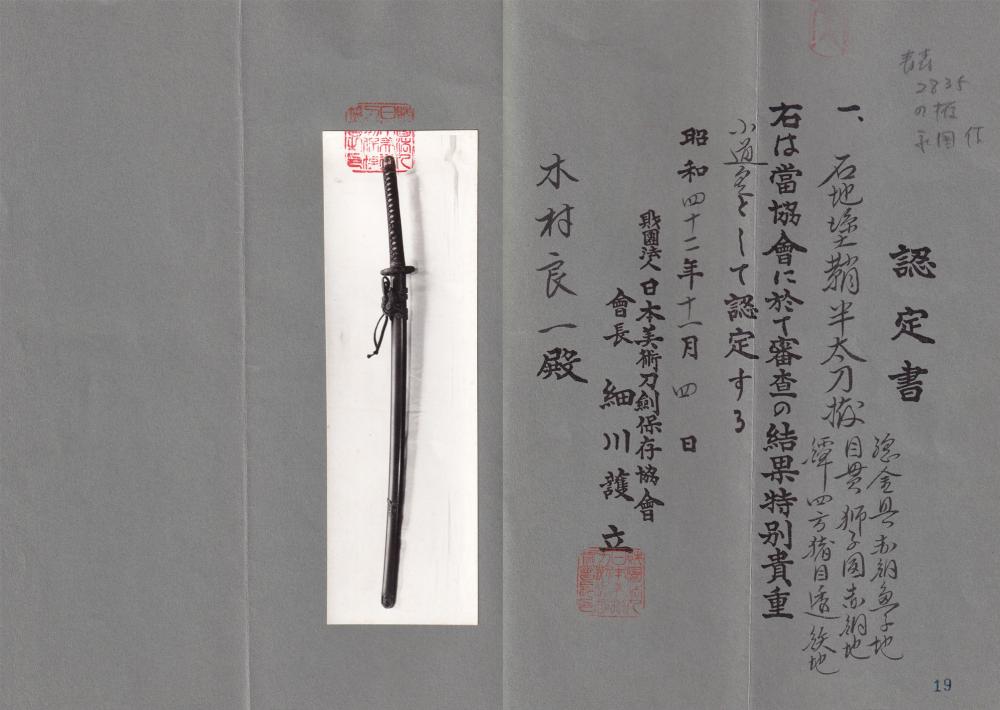 2835
認定書
一、石地塗鞘半太刀拵
総金具赤銅魚子地
目貫獅子図赤銅地
鐔四方猪目透鉄地
右は當協會に於て審査の結果特別貴重
小道具として認定する
昭和四十二年十一月四日
財團法人日本美術刀劍保存協會
會長 細川護立
木村良一殿
19